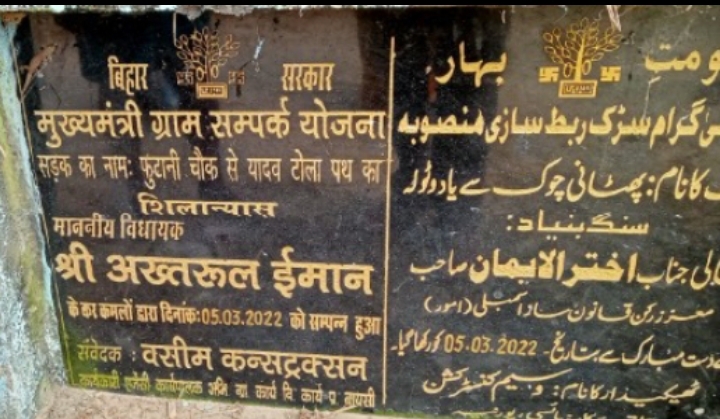 बिहार सरकार
मुख्यमंत्री ग्राम सम्पर्क योजना
सड़क का नाम: फुटानी चौक से यादव टोला पथ का
शिलान्यास
माननीय विधायक
श्री अख्तरूल ईमान
के कर कमलों द्वारा दिनांक:05.03.2022 को सम्पन्न हुआ
संवेदक : वसीम कन्सट्रक्सन
कार्यकारी एजेंसी कार्यपालक अभि ग्रा कार्य वि कार्य प्र बायसी
ومت بہار.
گرام سڑک ربط سازی منصوبہ
کا نام: پھٹانی چوک سے یادو ٹولہ
سنگ بنیاد:
لی جناب اختر الایمان صاحب
معزز رکن قانون ساز اسمبلی (امور)
دست مبارک سے بتاریخ- 05.03.2022 کو رکھا گیا.
ٹھیکیدار کا نام: وسیم کنسٹرکشن